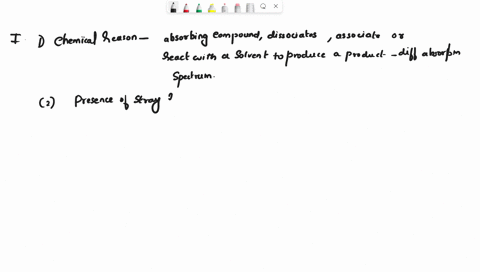 I 1) Chemical Reason — absorbing compound, dissociates, associate or
React with a Solvent to produce a product - diff absorpn
Spectrum.
(2) Presence of Stray